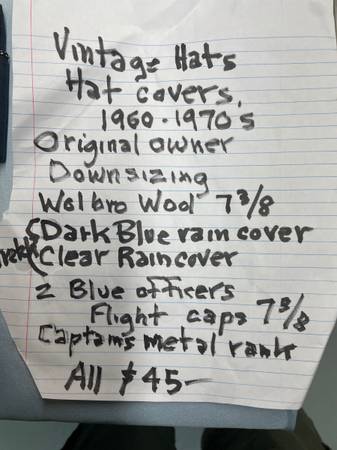 Vintage Hats
Hat covers,
1960-1970s
Original owner
Downsizing
Wolbro Wool 7 3/8
Dark Blue rain cover
Clear Rain cover
2 Blue officers
Flight caps 7 3/8
Captains metal rank
All $45-